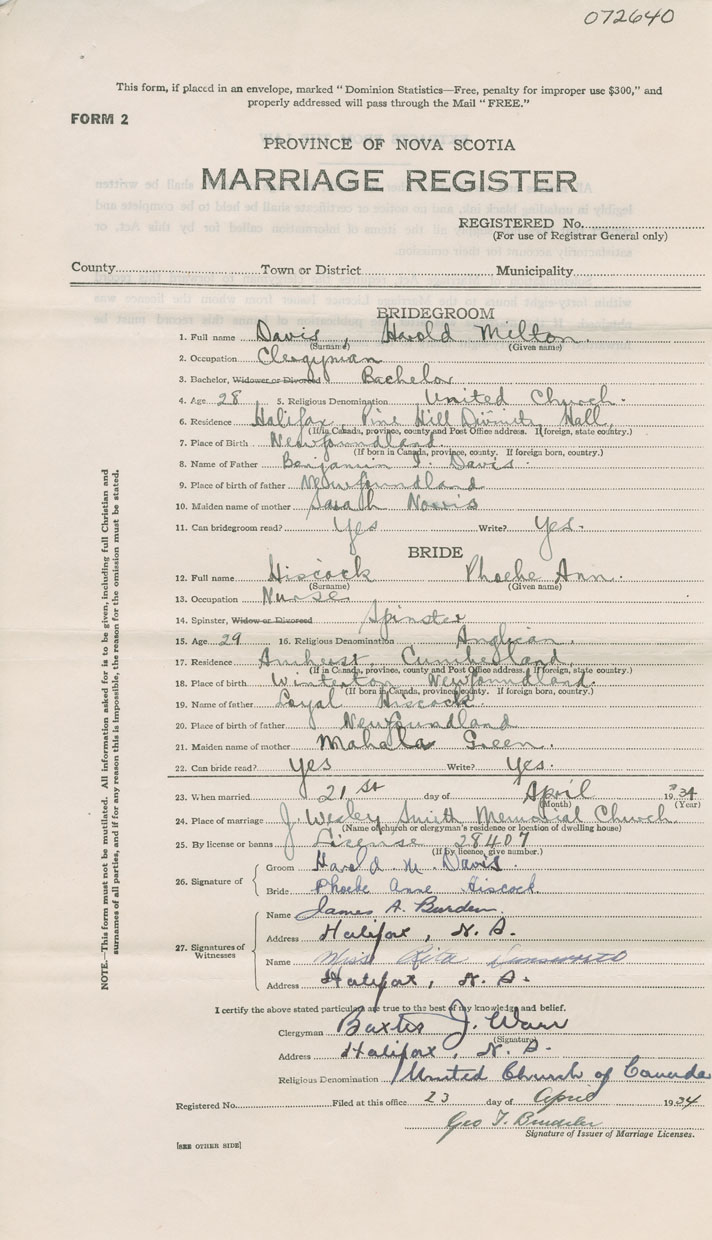 072640
This form, if placed in an envelope, marked "Dominion Statistics—Free, penalty for improper use $300," and
properly addressed will pass through the Mail "FREE."
FORM 2
PROVINCE OF NOVA SCOTIA
MARRIAGE REGISTER
REGISTERED No.
(For use of Registrar General only)
County Town or District Municipality
BRIDEGROOM
1. Full name Davis, Harold Milton.
(Surname) (Given name)
2. Occupation Clergyman
3. Bachelor, Widower or Divorced Bachelor
4. Age 28 5. Religious Denomination United Church.
6. Residence Halifax, Pine Hill Divinity Hall,
(If in Canada, province, county and Post Office address. If foreign, state country.)
7. Place of Birth Newfoundland.
(If born in Canada, province, county. If foreign born, country.)
8. Name of Father Benjamin Davis.
9. Place of birth of father Newfoundland
10. Maiden name of mother Sarah Norris
11. Can bridegroom read? Yes Write? Yes.
BRIDE
12. Full name Hiscock Phoebe Ann.
(Surname) (Given name)
13. Occupation Nurse
14. Spinster, Widow or Divorced Spinster
15. Age 29 16. Religious Denomination Anglican.
17. Residence Amherst Cumberland,
(If in Canada, province, county and Post Office address. If foreign, state country.)
18. Place of birth Winterton Newfoundland.
(If born in Canada, province, county. If foreign born, country.)
19. Name of father Loyal Hiscock.
20. Place of birth of father Newfoundland
21. Maiden name of mother Mahala Green.
22. Can bride read? Yes Write? Yes.
23. When married 21st day of April 1934
(Month) (Year)
24. Place of marriage J. Wesley Smith Memorial Church.
(Name of church or clergyman's residence or location of dwelling house)
25. By license or banns License 28407
(If by licence, give number.)
26. Signature of
Groom Harold M. Davis.
Bride Phoebe Anne Hiscock.
27. Signatures of Witnesses
Name James A. Burden.
Address Halifax, N. S.
Name Miss Rita
Address Halifax, N. S.
I certify the above stated particulars are true to the best of my knowledge and belief.
Clergyman Baxter J. Warr
(Signature)
Address Halifax, N. S.
Religious Denomination United Church of Canada
Registered No. Filed at this office 23 day of April 1934
Geo T.
Signature of Issuer of Marriage Licenses.
[SEE OTHER SIDE]
NOTE.—This form must not be mutilated. All information asked for is to be given, including full Christian and
surnames of all parties, and if for any reason this is impossible, the reason for the omission must be stated.